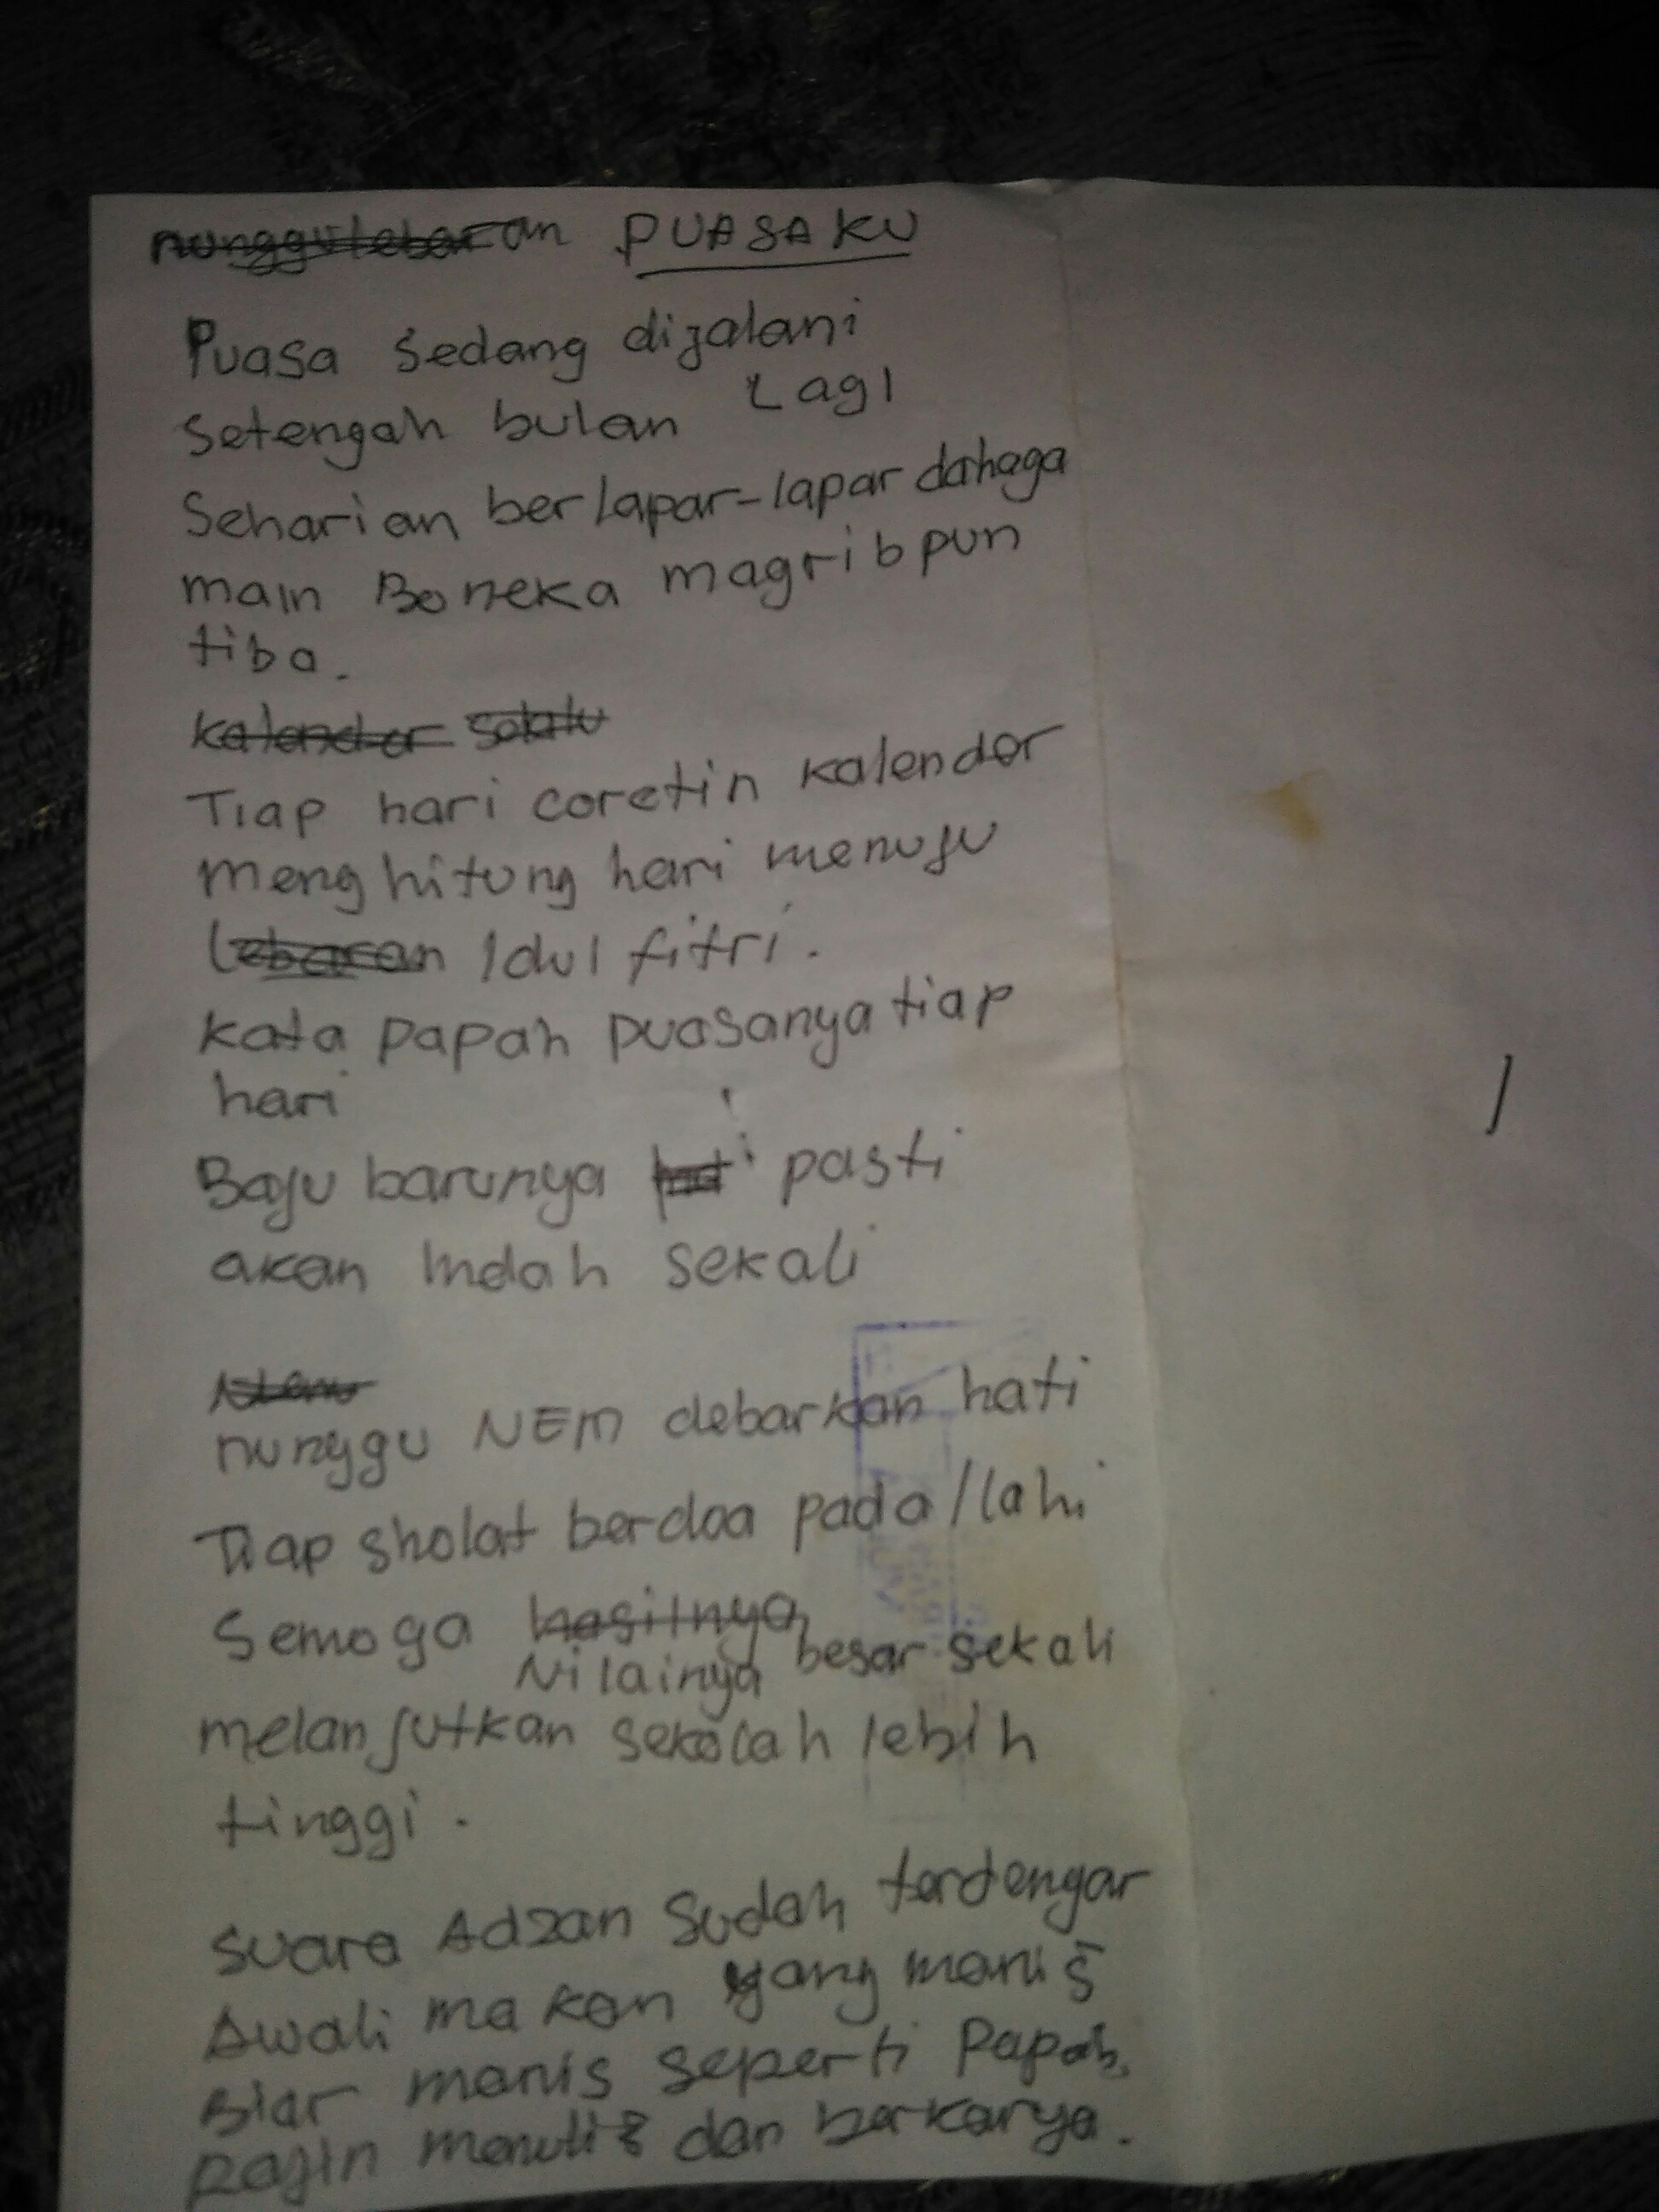 nunggu lebaran PUASAKU
Puasa sedang dijalani
Setengah bulan Lagi
Seharian berlapar-lapar dahaga
main Boneka magribpun
tiba.
kalender selalu
Tiap hari coretin kalender
menghitung hari menuju
lebaran Idul fitri.
Kata papah puasanya tiap
hari
Baju barunya hati pasti
akan Indah sekali
nunggu NEM debarkan hati
Tiap sholat berdoa pada Ilahi
Semoga hasilnya
Nilainya besar sekali
melanjutkan sekolah lebih
tinggi.
Suara Adzan Sudah terdengar
Awali makan yang manis
Biar manis seperti Papah.
Rajin menulis dan berkarya.